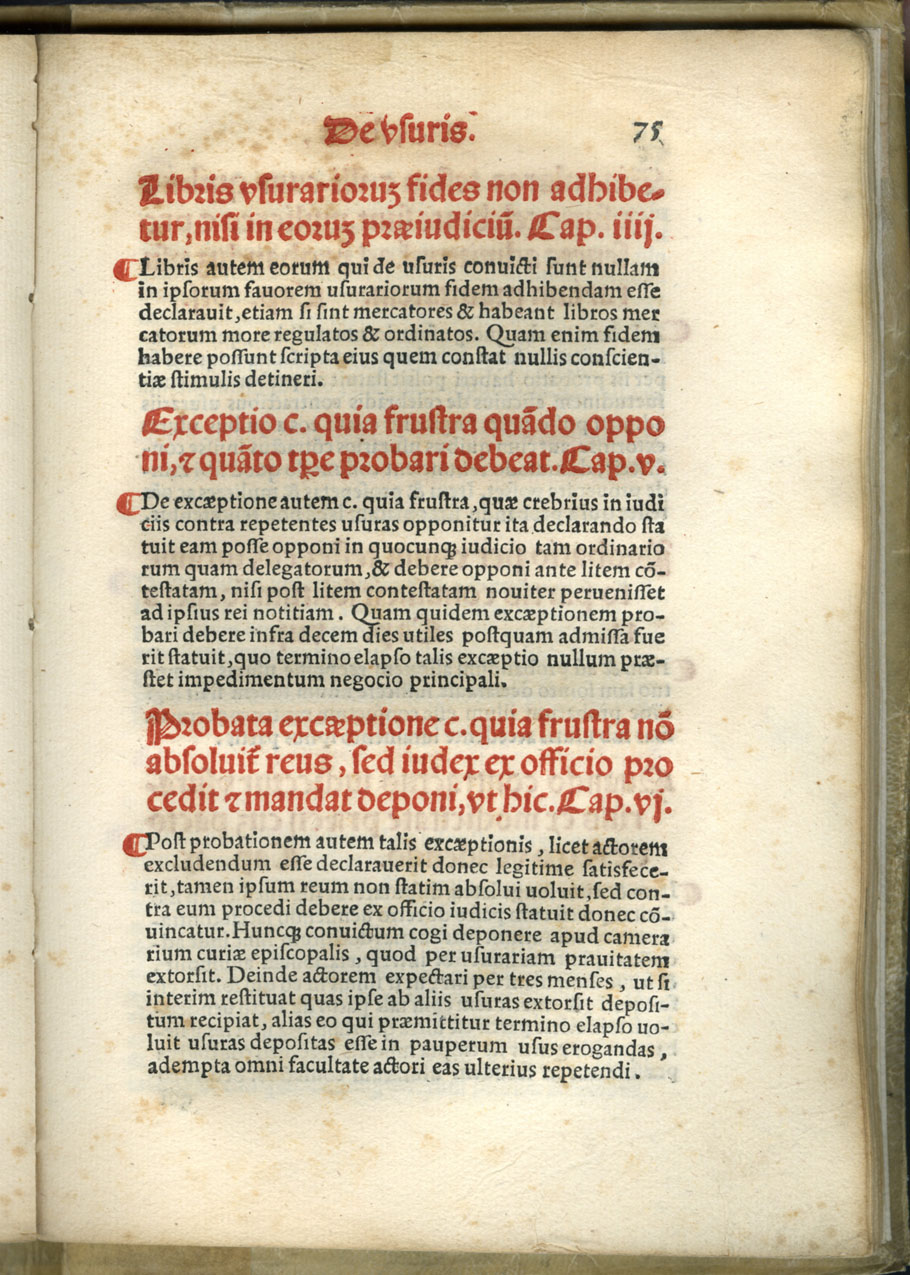 De vſuris.
75
Libris vſurarioruꝫ fides non adhibe-
tur, niſi in eoruꝫ præiudiciū. Cap. iiij.
¶Libris autem eorum qui de uſuris conuicti ſunt nullam
in ipſorum fauorem uſurariorum fidem adhibendam eſſe
declarauit, etiam ſi ſint mercatores & habeant libros mer
catorum more regulatos & ordinatos. Quam enim fidem
habere poſſunt ſcripta eius quem conſtat nullis conſcien-
tiæ ſtimulis detineri.
Exceptio c. quia fruſtra quādo oppo
ni, ⁊ quāto tꝑe probari debeat. Cap. v.
¶De excæptione autem c. quia fruſtra, quæ crebrius in iudi
ciis contra repetentes uſuras opponitur ita declarando ſta
tuit eam poſſe opponi in quocunqꝫ iudicio tam ordinario
rum quam delegatorum, & debere opponi ante litem cō-
teſtatam, niſi poſt litem conteſtatam nouiter perueniſſet
ad ipſius rei notitiam. Quam quidem excæptionem pro-
bari debere infra decem dies utiles poſtquam admiſſa fue
rit ſtatuit, quo termino elapſo talis excæptio nullum præ-
ſtet impedimentum negocio principali.
Probata excæptione c. quia fruſtra nō
abſoluit̄ reus, ſed iudex ex officio pro
cedit ⁊ mandat deponi, vt hic. Cap. vj.
¶Poſt probationem autem talis excæptionis, licet actorem
excludendum eſſe declarauerit donec legitime ſatisfece-
rit, tamen ipſum reum non ſtatim abſolui uoluit, ſed con-
tra eum procedi debere ex officio iudicis ſtatuit donec cō-
uincatur. Huncqꝫ conuictum cogi deponere apud camera
rium curiæ epiſcopalis, quod per uſurariam prauitatem
extorſit. Deinde actorem expectari per tres menſes, ut ſi
interim reſtituat quas ipſe ab aliis uſuras extorſit depoſi-
tum recipiat, alias eo qui præmittitur termino elapſo uo-
luit uſuras depoſitas eſſe in pauperum uſus erogandas,
adempta omni facultate actori eas ulterius repetendi.